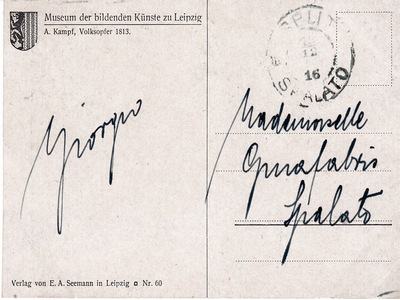 Museum der bildenden Künste zu Leipzig
A. Kampf, Volksopfer 1813.
SPLIT
12
16
SPALATO
Giorgio
Mademoiselle
Spalato
Verlag von E. A. Seemann in Leipzig ¤ Nr. 60